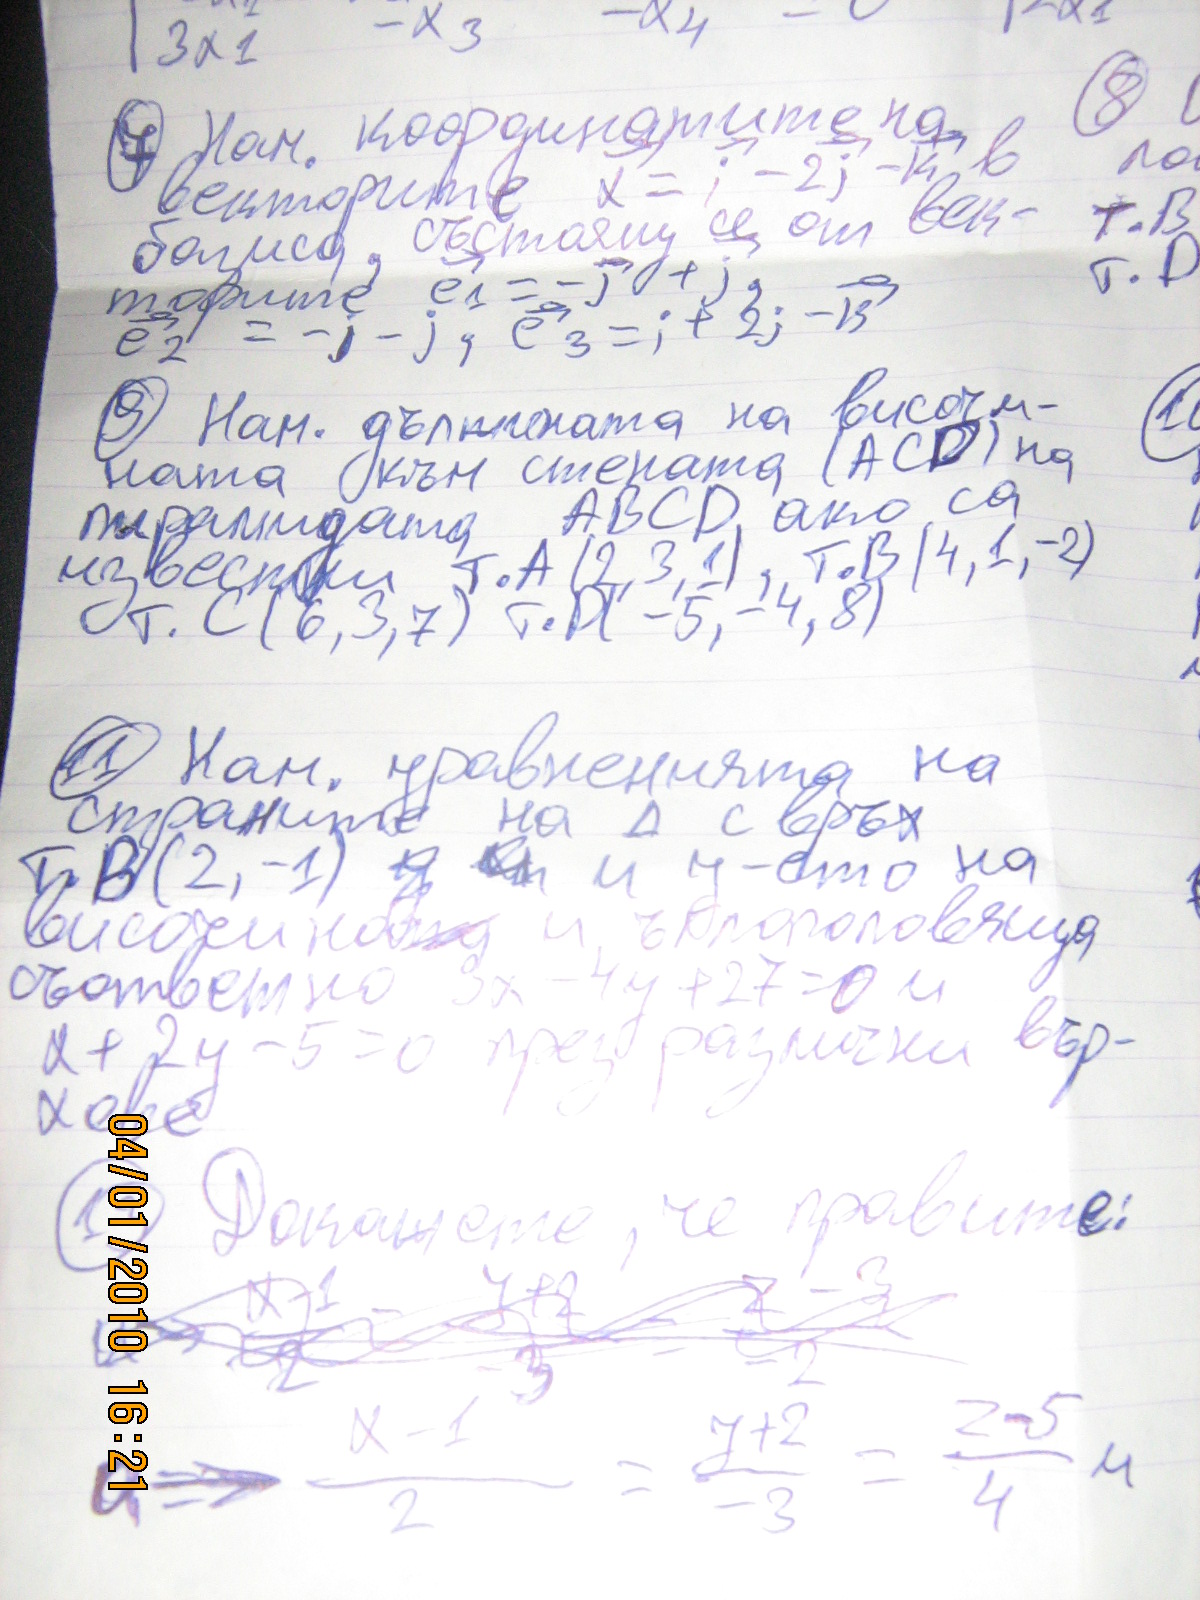 3x1 -x3 -x4 = 0
7 Нам. координатите на
векторите x = i - 2j - k в
базиса, състоящ се от век-
торите e1 = -j + j,
e2 = -j - j, e3 = i + 2j - k
9 Нам. дължината на височи-
ната към стената (ACD) на
пирамидата ABCD, ако са
известни т.A(2,3,1), т.B(4,1,-2)
т.C(6,3,7) т.D(-5,-4,8)
11 Нам. уравненията на
страните на Δ с връх
т.B(2,-1) и у-ето на
височината и ъглополовяща
съответно 3x - 4y + 27 = 0 и
x + 2y - 5 = 0 през различни вър-
хове
Докажете, че правите:
x-1/2 = y+2/-3 = z-3/-2
a => x-1/2 = y+2/-3 = z-5/4 и
8
т.B
т.D
04/01/2010 16:21